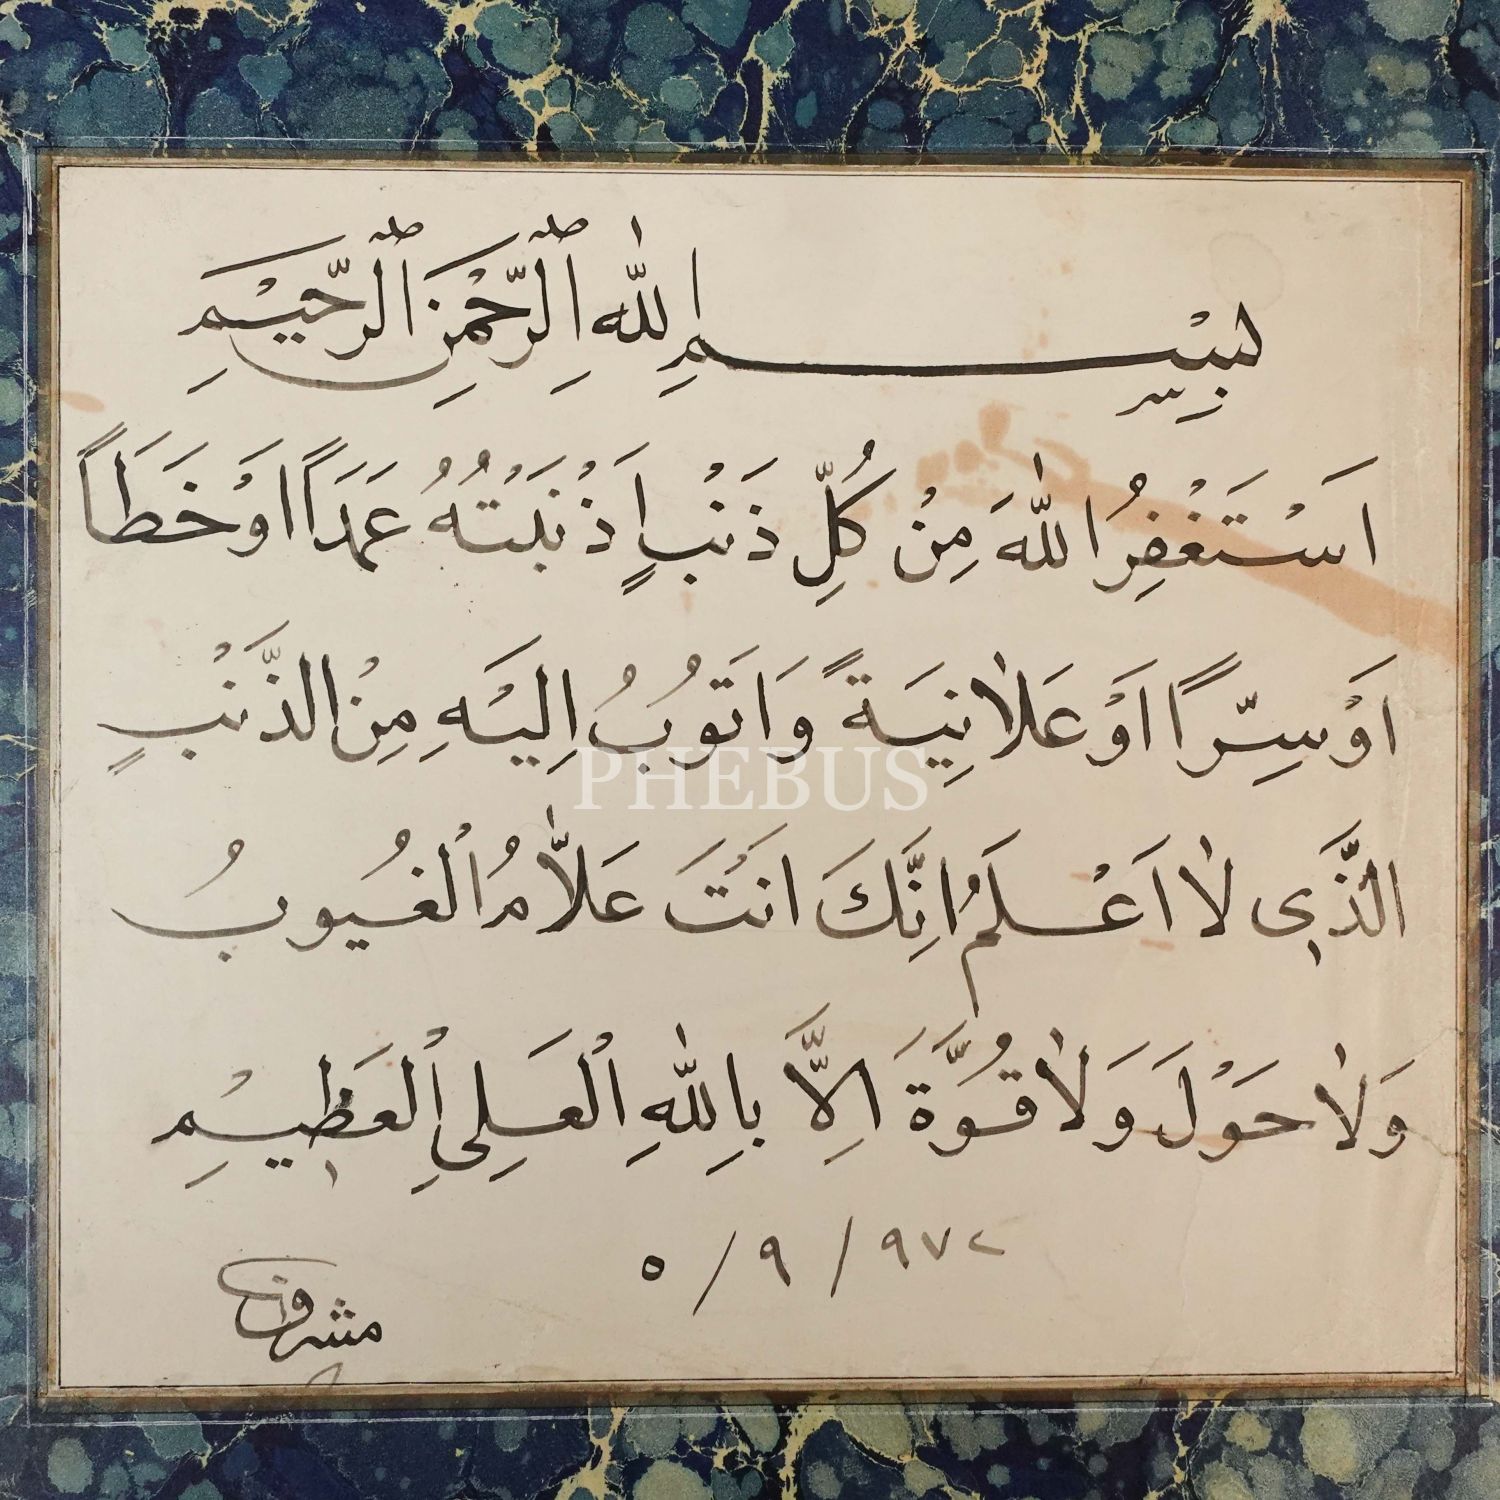 بِسْمِ اللهِ الرَّحْمٰنِ الرَّحِيْمِ
اَسْتَغْفِرُ اللّٰهَ مِنْ كُلِّ ذَنْبٍ اَذْنَبْتُهُ عَمَدًا اَوْ خَطَاً
اَوْ سِرًّا اَوْ عَلَانِيَةً وَاَتُوبُ اِلَيْهِ مِنْ الذَّنْبِ
الذَّى لَا اَعْلَمُ اِنَّكَ اَنْتَ عَلَّامُ الْغُيوبُ
وَلَا حَوْلَ وَلَا قُوَّةَ اِلَّا بِاللّٰهِ الْعَلِىِ الْعَظِيْمِ
٥/٩/٩٧٢
PHEBUS